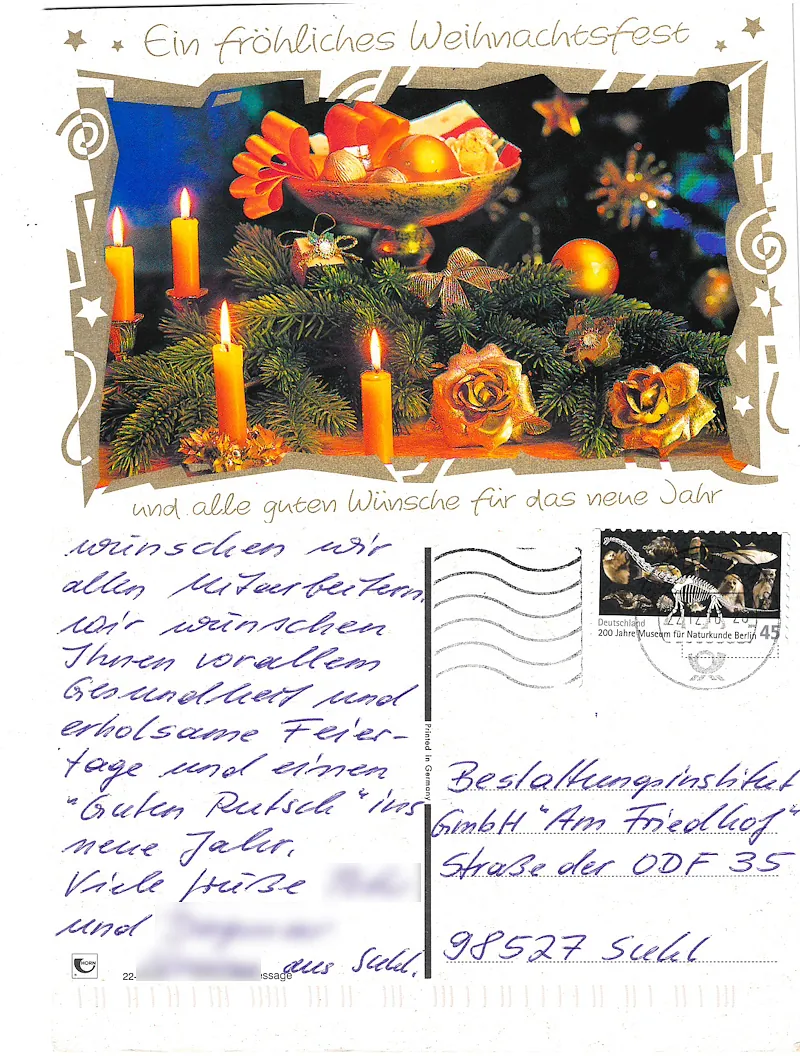 Ein fröhliches Weihnachtsfest
und alle guten Wünsche für das neue Jahr
wünschen wir
allen Mitarbeitern.
Wir wünschen
Ihnen vorallem
Gesundheit und
erholsame Feier-
tage und einen
"Guten Rutsch" ins
neue Jahr.
Viele Grüße
und
aus Suhl.
HORN
22-
essage
Printed in Germany
Deutschland
200 Jahre Museum für Naturkunde Berlin 45
22.12.10
Bestattungsinstitut
GmbH "Am Friedhof"
Straße der ODF 35
98527 Suhl